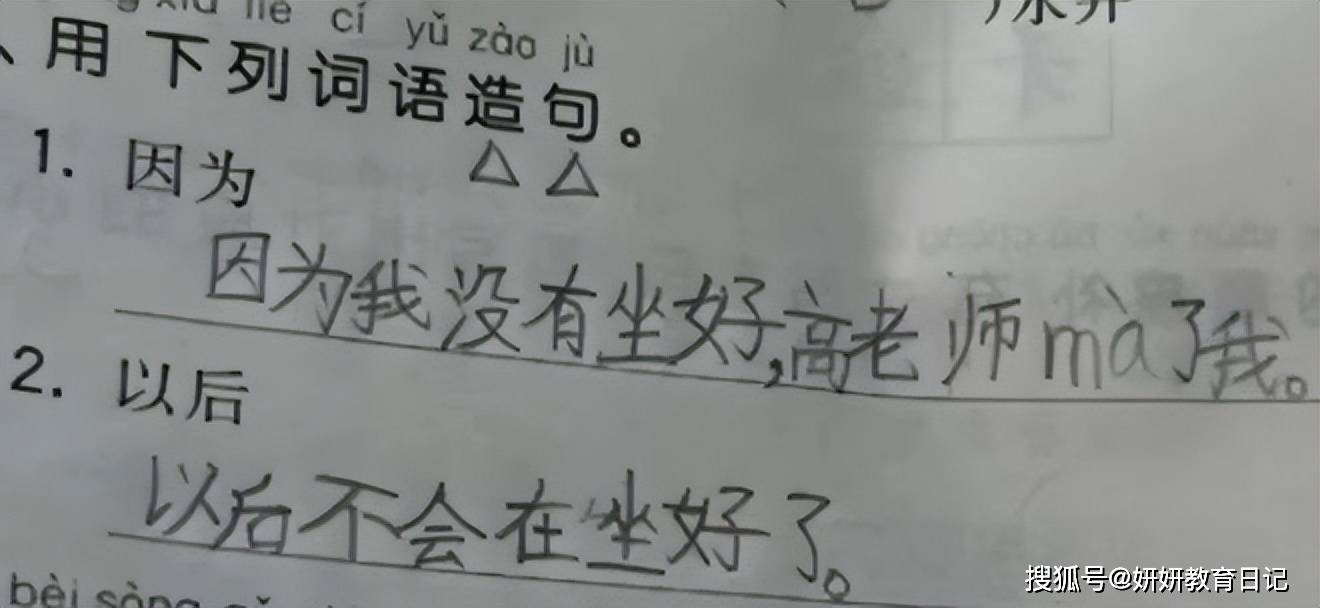 xià liè cí yǔ zào jù
、用下列词语造句。
1. 因为
因为我没有坐好,高老师mà了我。
2. 以后
以后不会在坐好了。
bèi sòng
搜狐号@妍妍教育日记